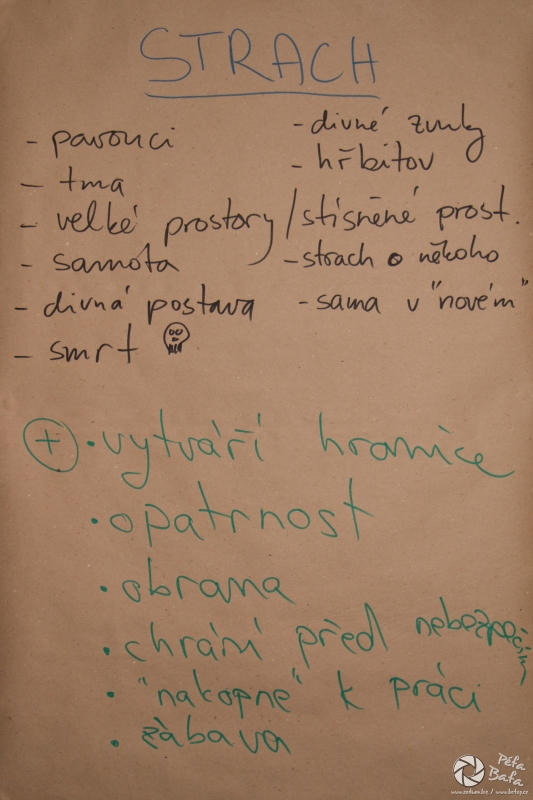 STRACH
- pavouci
- tma
- velké prostory / stísněné prost.
- samota
- divná postava
- smrt
- divné zvuky
- hřbitov
- strach o někoho
- sama v "novém"
+ • vytváří hranice
• opatrnost
• obrana
• chrání před nebezpečím
• "nakopne" k práci
• zábava
Péťa
Baťa